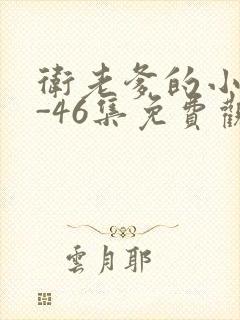 衛老爹的小
-46集免費觀
雲月耶